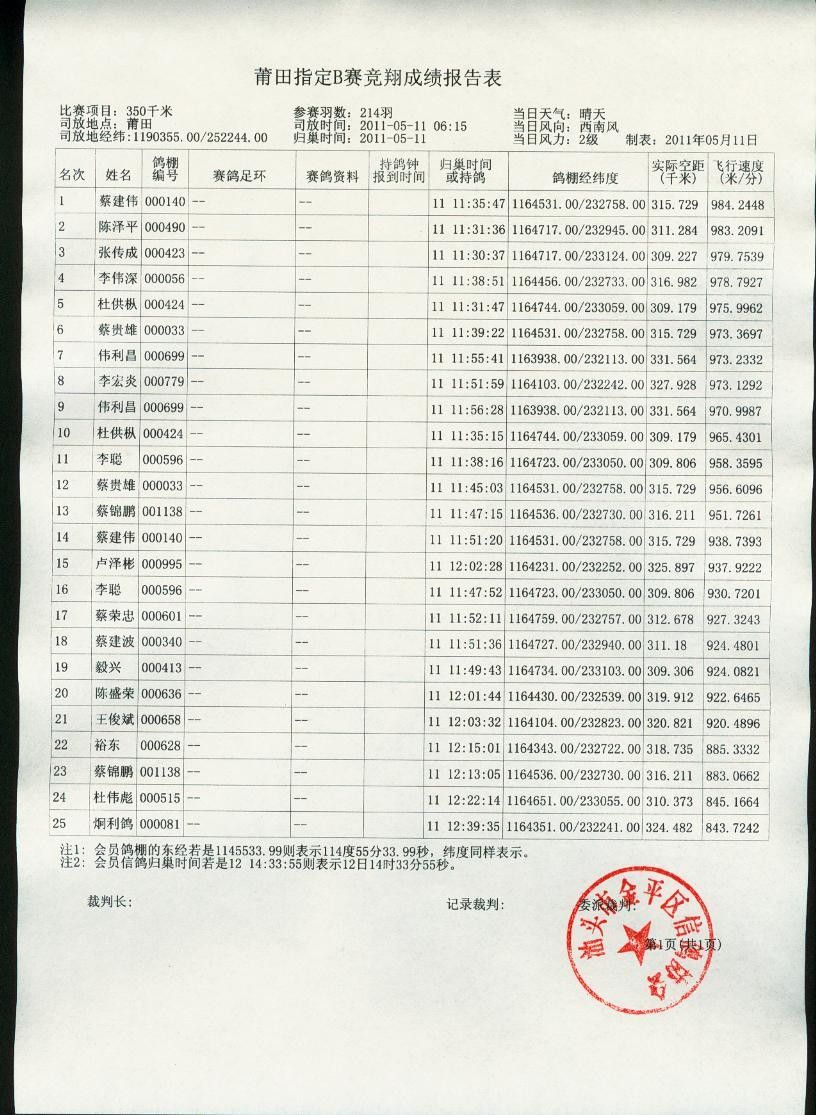 莆田指定B赛竞翔成绩报告表
比赛项目: 350千米 参赛羽数: 214羽 当日天气: 晴天
司放地点: 莆田 司放时间: 2011-05-11 06:15 当日风向: 西南风
司放地经纬:1190355.00/252244.00 归巢时间: 2011-05-11 当日风力: 2级 制表: 2011年05月11日
名次 姓名 鸽棚编号 赛鸽足环 赛鸽资料 持鸽钟报到时间 归巢时间或持鸽 鸽棚经纬度 实际空距(千米) 飞行速度(米/分)
1 蔡建伟 000140 -- -- 11 11:35:47 1164531.00/232758.00 315.729 984.2448
2 陈泽平 000490 -- -- 11 11:31:36 1164717.00/232945.00 311.284 983.2091
3 张传成 000423 -- -- 11 11:30:37 1164717.00/233124.00 309.227 979.7539
4 李伟深 000056 -- -- 11 11:38:51 1164456.00/232733.00 316.982 978.7927
5 杜供枞 000424 -- -- 11 11:31:47 1164744.00/233059.00 309.179 975.9962
6 蔡贵雄 000033 -- -- 11 11:39:22 1164531.00/232758.00 315.729 973.3697
7 伟利昌 000699 -- -- 11 11:55:41 1163938.00/232113.00 331.564 973.2332
8 李宏炎 000779 -- -- 11 11:51:59 1164103.00/232242.00 327.928 973.1292
9 伟利昌 000699 -- -- 11 11:56:28 1163938.00/232113.00 331.564 970.9987
10 杜供枞 000424 -- -- 11 11:35:15 1164744.00/233059.00 309.179 965.4301
11 李聪 000596 -- -- 11 11:38:16 1164723.00/233050.00 309.806 958.3595
12 蔡贵雄 000033 -- -- 11 11:45:03 1164531.00/232758.00 315.729 956.6096
13 蔡锦鹏 001138 -- -- 11 11:47:15 1164536.00/232730.00 316.211 951.7261
14 蔡建伟 000140 -- -- 11 11:51:20 1164531.00/232758.00 315.729 938.7393
15 卢泽彬 000995 -- -- 11 12:02:28 1164231.00/232252.00 325.897 937.9222
16 李聪 000596 -- -- 11 11:47:52 1164723.00/233050.00 309.806 930.7201
17 蔡荣忠 000601 -- -- 11 11:52:11 1164759.00/232757.00 312.678 927.3243
18 蔡建波 000340 -- -- 11 11:51:36 1164727.00/232940.00 311.18 924.4801
19 毅兴 000413 -- -- 11 11:49:43 1164734.00/233103.00 309.306 924.0821
20 陈盛荣 000636 -- -- 11 12:01:44 1164430.00/232539.00 319.912 922.6465
21 王俊斌 000658 -- -- 11 12:03:32 1164104.00/232823.00 320.821 920.4896
22 裕东 000628 -- -- 11 12:15:01 1164343.00/232722.00 318.735 885.3332
23 蔡锦鹏 001138 -- -- 11 12:13:05 1164536.00/232730.00 316.211 883.0662
24 杜伟彪 000515 -- -- 11 12:22:14 1164651.00/233055.00 310.373 845.1664
25 炯利鸽 000081 -- -- 11 12:39:35 1164351.00/232241.00 324.482 843.7242
注1: 会员鸽棚的东经若是1145533.99则表示114度55分33.99秒, 纬度同样表示。
注2: 会员信鸽归巢时间若是12 14:33:55则表示12日14时33分55秒。
裁判长: 记录裁判: 委派裁判:
第1页(共1页)
汕头市金平区信鸽协会